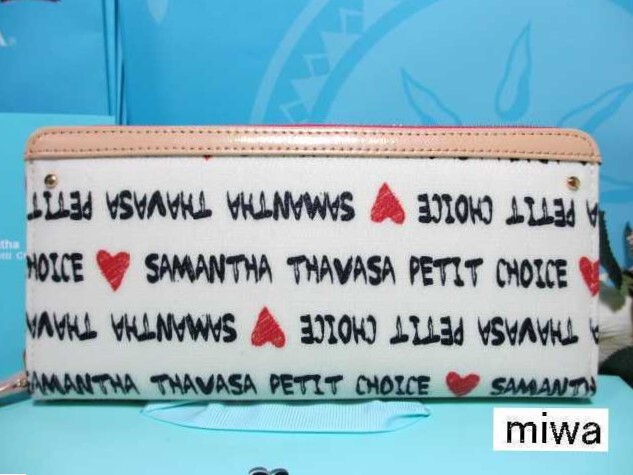 A
PETIT CHOICE ♥ SAMANTHA THAVASA PETIT
HOICE ♥ SAMANTHA THAVASA PETIT CHOICE ♥
THAVASA PETIT CHOICE ♥ SAMANTHA THAVA
SAMANTHA THAVASA PETIT CHOICE ♥ SAMANTH
tha
miwa